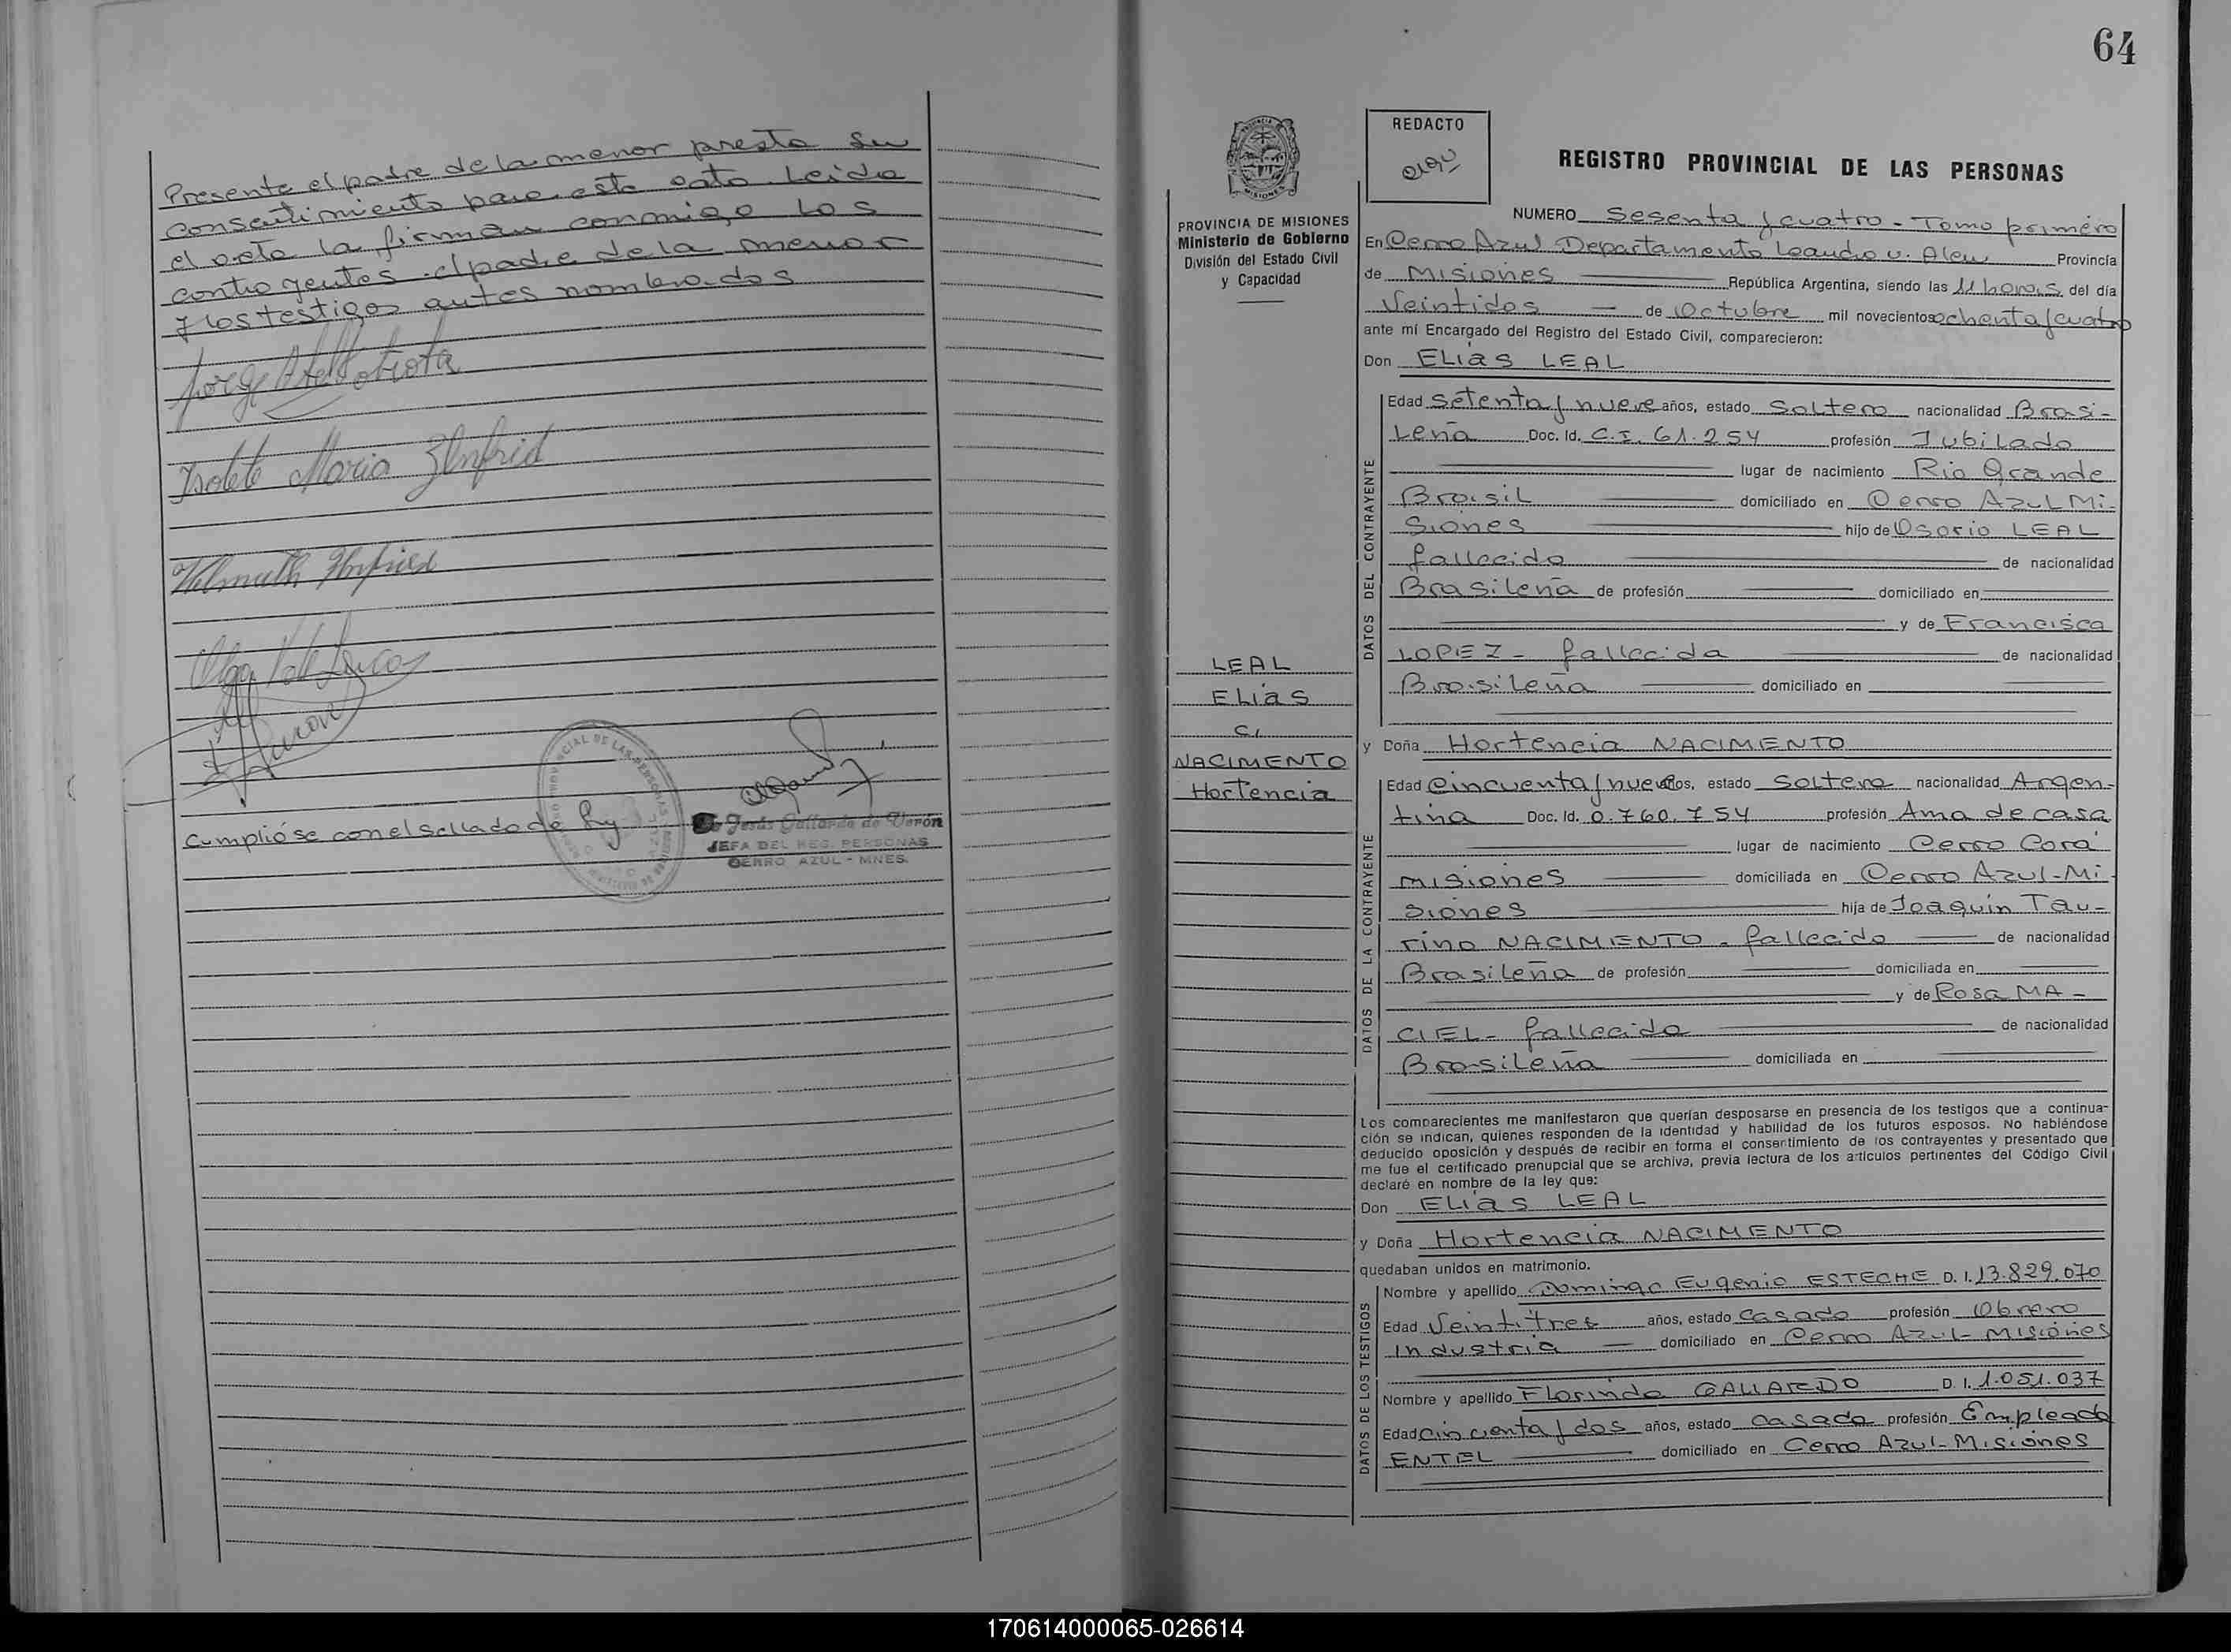 Presente el padre de la menor presta su
consentimiento para este acto. Leida
el acta la firman conmigo los
contrayentes el padre de la menor
y los testigos antes nombrados
Isolete Maria
Helmuth
Olga
Cumplióse con el sellado de Ley
Jesús Gallardo de Verón
JEFA DEL REG. PERSONAS
CERRO AZUL - MNES.
64
REDACTO
REGISTRO PROVINCIAL DE LAS PERSONAS
PROVINCIA DE MISIONES
Ministerio de Gobierno
División del Estado Civil
y Capacidad
LEAL
Elias
c/
NACIMENTO
Hortencia
NUMERO Sesenta y cuatro - Tomo primero
En Cerro Azul Departamento Leandro N. Alem Provincia
de Misiones República Argentina, siendo las 11 horas del día
Veintidos de Octubre mil novecientos ochenta y cuatro
ante mí Encargado del Registro del Estado Civil, comparecieron:
Don Elias LEAL
DATOS DEL CONTRAYENTE
Edad Setenta y nueve años, estado Soltero nacionalidad Brasi-
leña Doc. Id. C.I. 61.254 profesión Jubilado
lugar de nacimiento Rio Grande
Brasil domiciliado en Cerro Azul Mi-
siones hijo de Osorio LEAL
fallecido de nacionalidad
Brasileña de profesión domiciliado en
y de Francisca
LOPEZ - fallecida de nacionalidad
Brasileña domiciliado en
y Doña Hortencia NACIMENTO
DATOS DE LA CONTRAYENTE
Edad Cincuenta y nueve años, estado Soltera nacionalidad Argen-
tina Doc. Id. 0.760.754 profesión Ama de casa
lugar de nacimiento Cerro Corá
Misiones domiciliada en Cerro Azul - Mi-
siones hija de Joaquin Tau-
rino NACIMENTO - fallecido de nacionalidad
Brasileña de profesión domiciliada en
y de Rosa MA-
CIEL - fallecida de nacionalidad
Brasileña domiciliada en
Los comparecientes me manifestaron que querían desposarse en presencia de los testigos que a continua-
ción se indican, quienes responden de la identidad y habilidad de los futuros esposos. No habiéndose
deducido oposición y después de recibir en forma el consentimiento de los contrayentes y presentado que
me fue el certificado prenupcial que se archiva, previa lectura de los artículos pertinentes del Código Civil
declaré en nombre de la ley que:
Don Elias LEAL
y Doña Hortencia NACIMENTO
quedaban unidos en matrimonio.
DATOS DE LOS TESTIGOS
Nombre y apellido Domingo Eugenio ESTECHE D. I. 13.829.070
Edad Veintitres años, estado Casado profesión Obrero
Industria domiciliado en Cerro Azul - Misiones
Nombre y apellido Florindo GALLARDO D. I. 1.051.037
Edad Cincuenta y dos años, estado Casado profesión Empleado
ENTEL domiciliado en Cerro Azul - Misiones
170614000065-026614